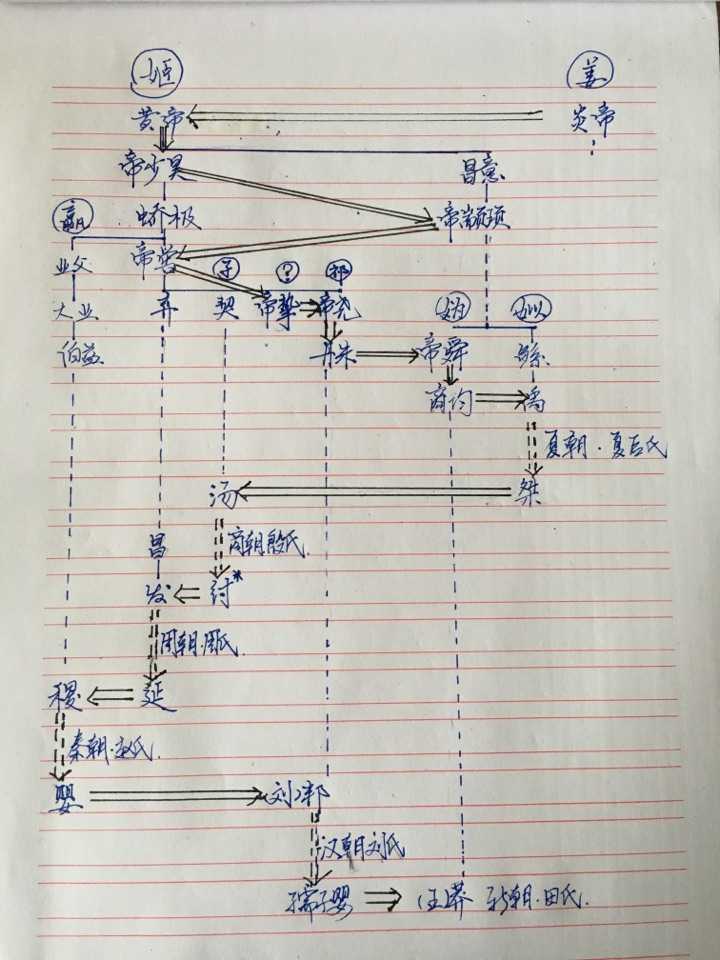 姬 姜
黄帝 炎帝
帝少昊 昌意
嬴 蟜极 帝颛顼
业父 帝喾 子 ? 祁
大业 弃 契 帝挚 帝尧 妫 姒
伯益 丹朱 帝舜 鲧
商均 禹
夏朝·夏后氏
汤 桀
昌 商朝殷氏.
发 纣*
周朝·周氏
稷 延
秦朝·赵氏.
婴 刘邦
汉朝刘氏
孺子婴 王莽 新朝·田氏.